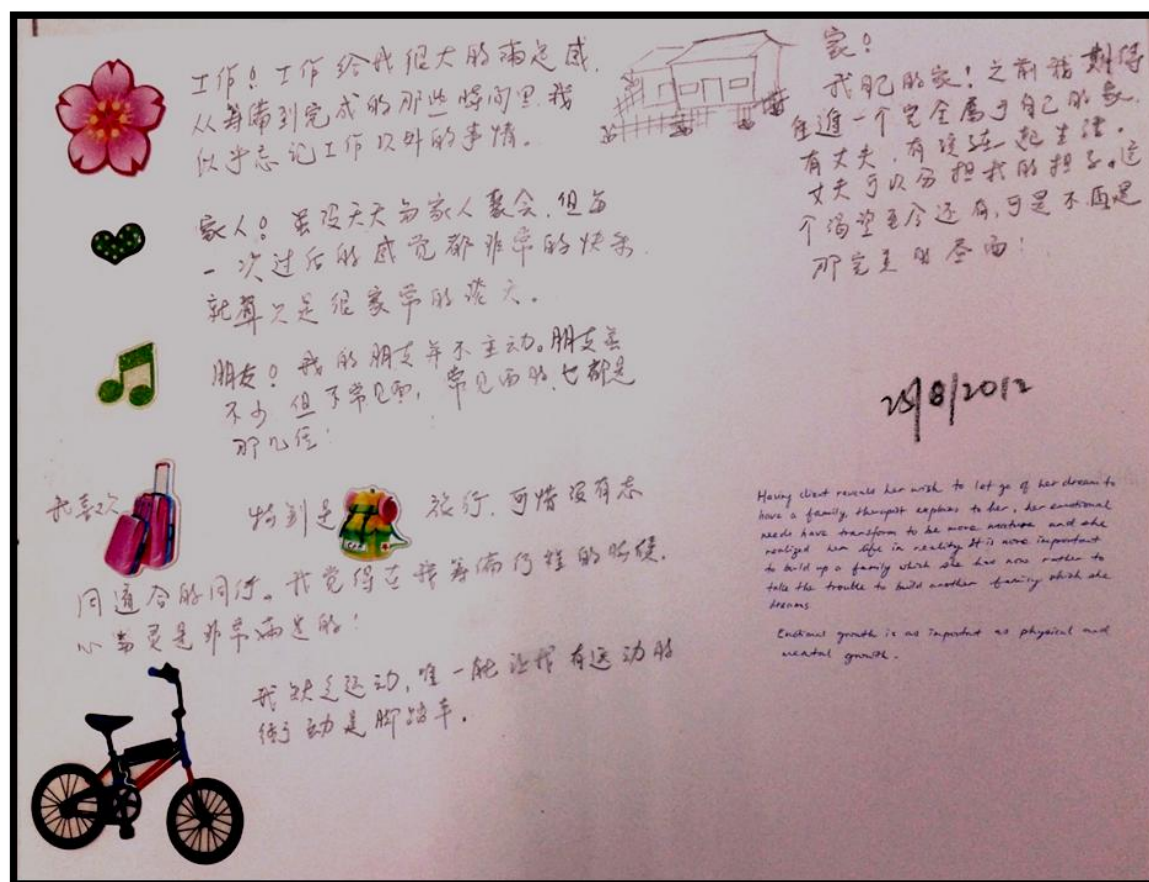 工作！工作给我很大的满足感.
从筹备到完成的那些时间里我
似乎忘记工作以外的事情。
家人！虽没天天与家人聚会,但每
一次过后的感觉都非常的快乐.
就算只是很家常的谈天。
朋友！我的朋友并不主动。朋友虽
不少,但不常见面,常见面的,也都是
那几位！
我喜欢
特别是 旅行,可惜没有志
同道合的同伴。我觉得在我筹备行程的时候.
心灵是非常满足的！
我缺乏运动,唯一能让我有运动的
冲动是脚踏车.
家！
我自己的家！之前我期待
住进一个完全属于自己的家.
有丈夫,有孩子一起生活.
丈夫可以分担我的担子。这
个渴望至今还有,可是不再是
那完美的画面！
25/8/2012
Having client reveals her wish to let go of her dream to
have a family, therapist explains to her, her emotional
needs have transform to be more mature and she
realized her life in reality. It is more important
to build up a family which she has now rather to
take the trouble to build another family which she
dreams
Emotional growth is as important as physical and
mental growth.